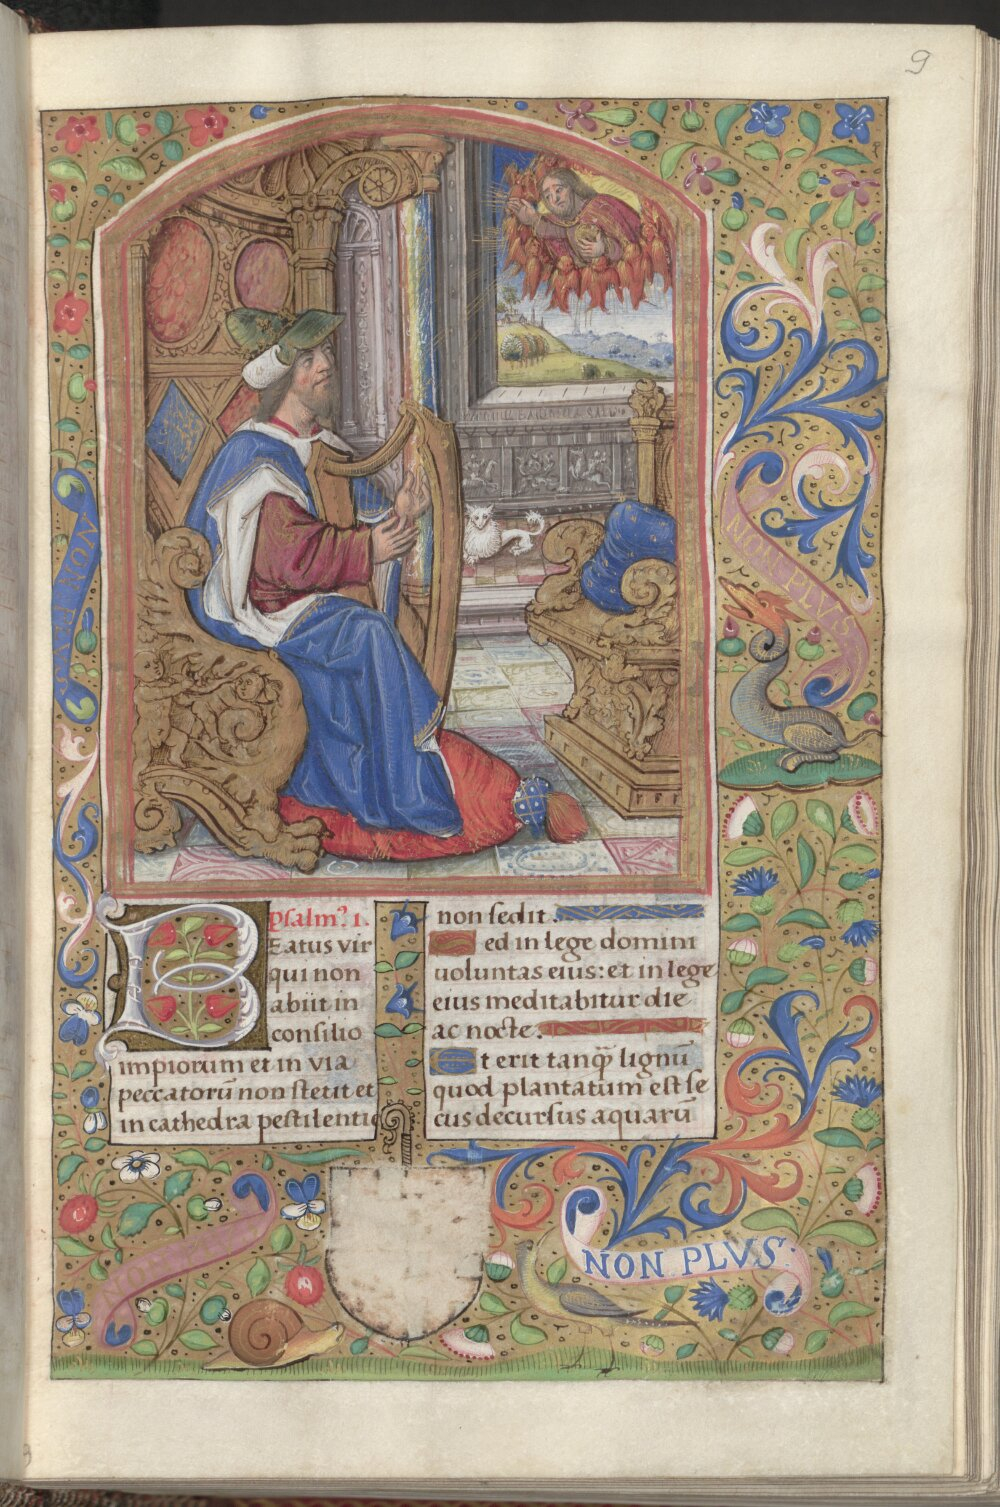 9
NON PLVS
NON PLVS
Psalm⁹ 1.
Beatus vir
qui non
abiit in
consilio
impiorum et in via
peccatorū non stetit et
in cathedra pestilentie
non sedit.
Sed in lege domini
uoluntas eius: et in lege
eius meditabitur die
ac nocte.
Et erit tanq̄ lignū
quod plantatum est se
cus decursus aquarū
NON PLVS
NON PLVS: